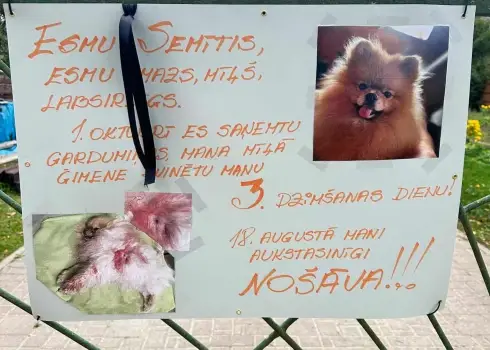 Esmu Semītis,
esmu mazs, mīļš,
labsirdīgs.
1. oktobrī es saņemtu
gardumiņus, mana mīļā
ģimene svinētu manu
3. dzimšanas dienu!
18. augustā mani
aukstasinīgi
nošāva!!!